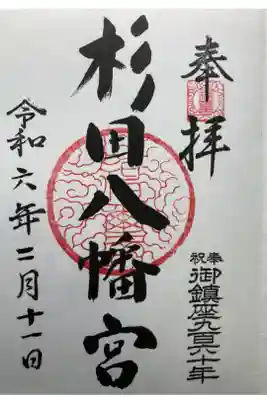 奉拝
奉祝 御鎮座九百六十年
杉田八幡宮
令和六年二月十一日